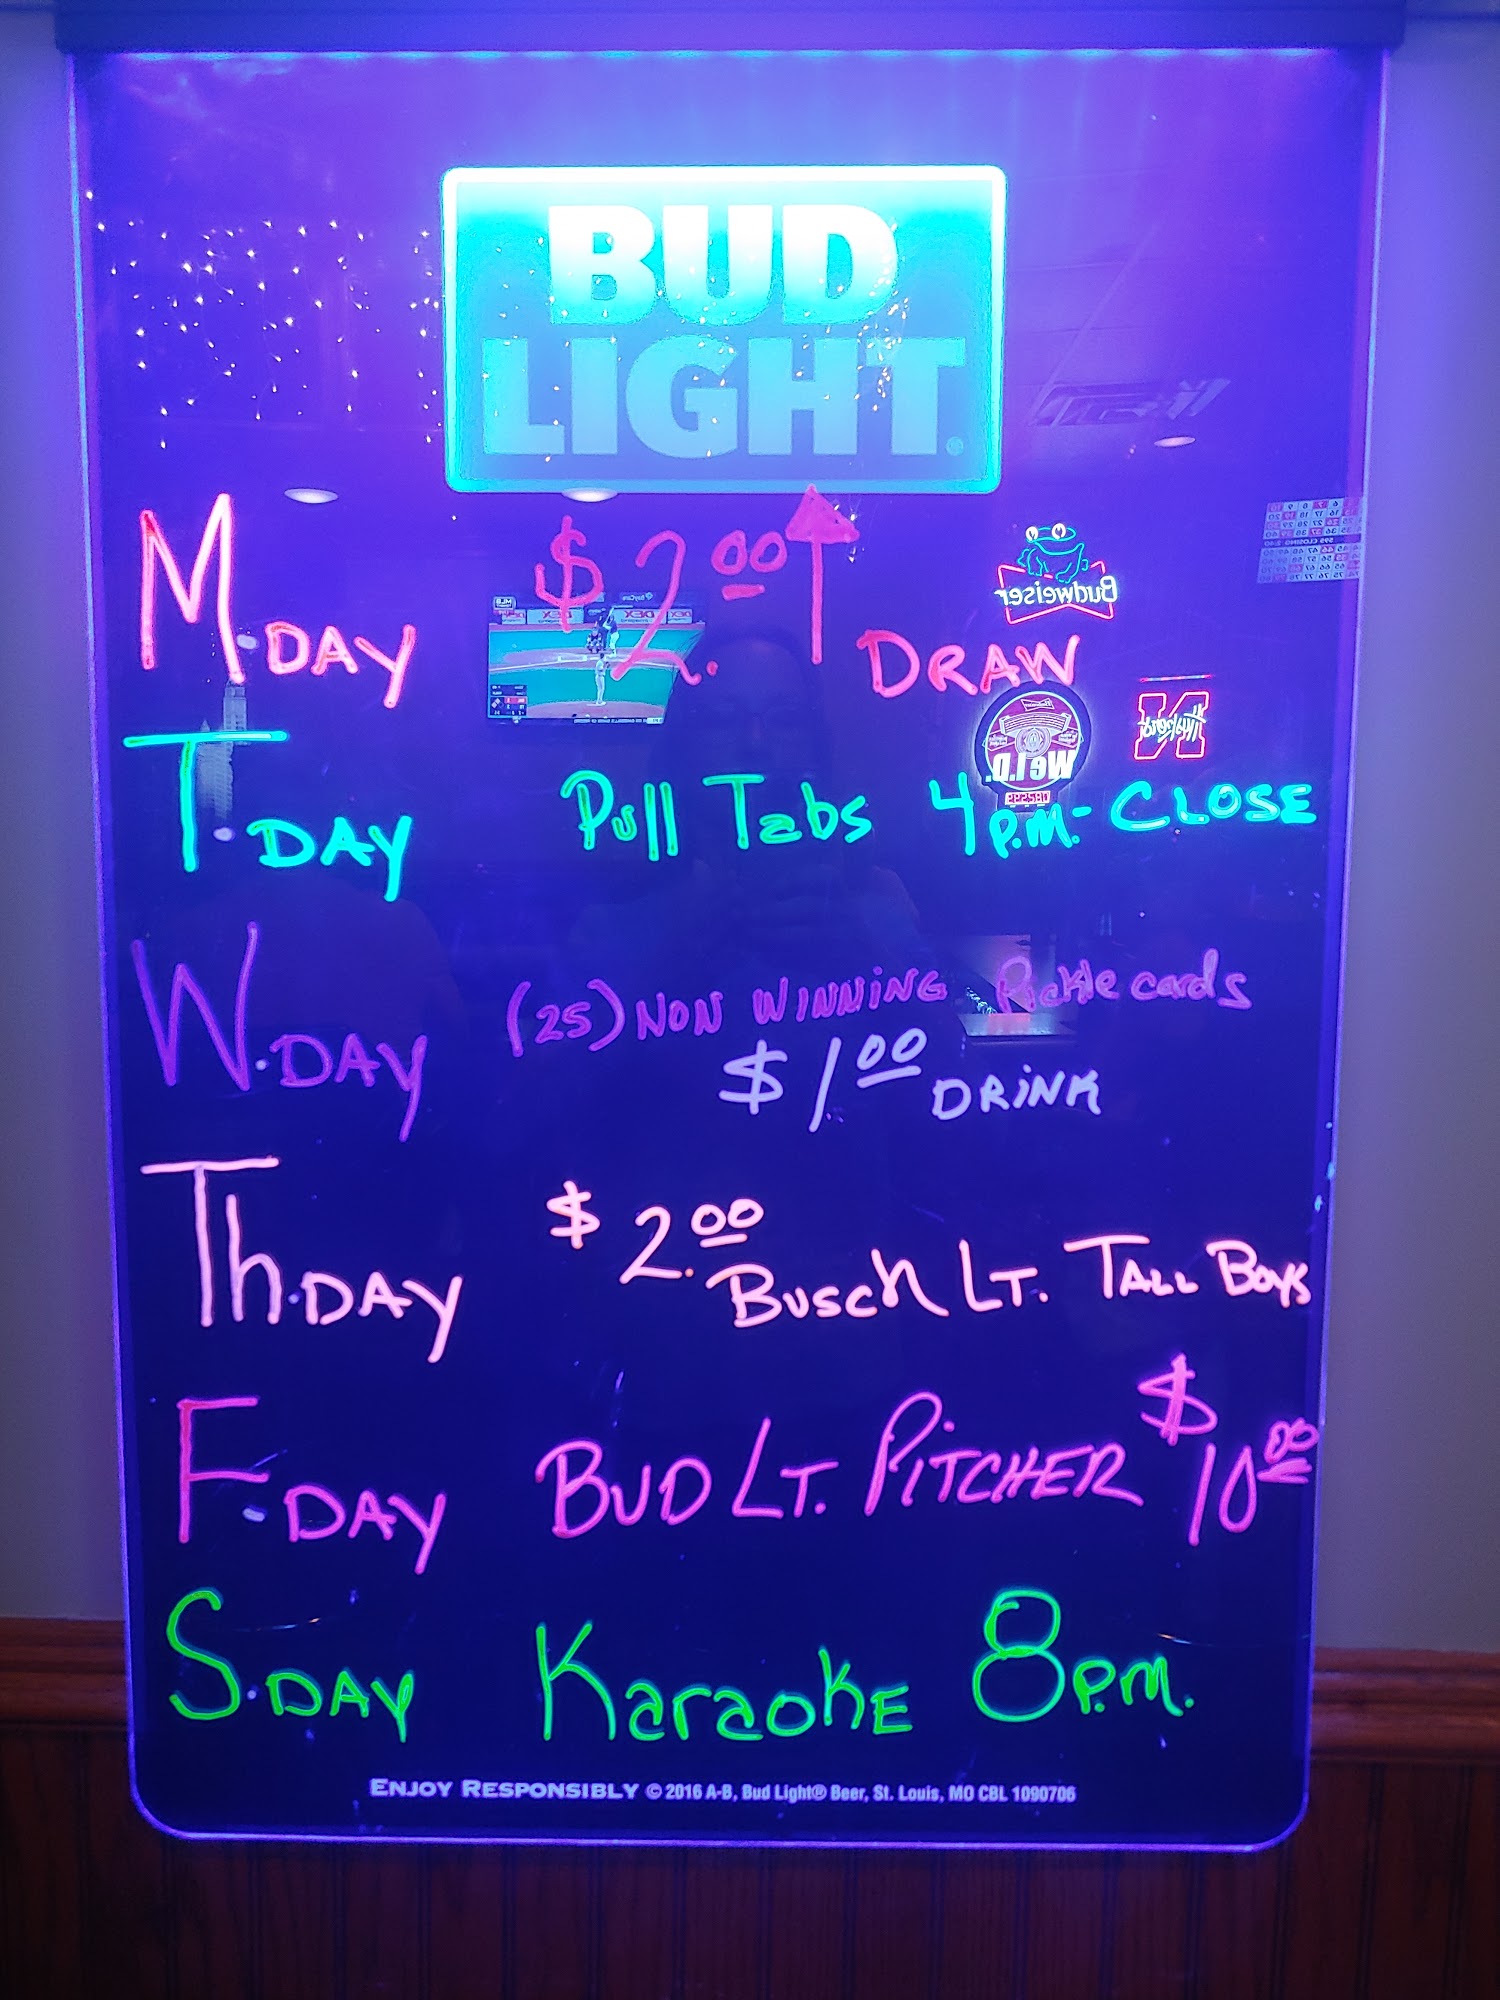 BUD
LIGHT
M.DAY $2.00 DRAW
T.DAY Pull Tabs 4 p.m.- CLOSE
W.DAY (25) NON WINNING Pickle cards
$1.00 DRINK
Th.DAY $2.00 BUSCH LT. TALL BOYS
F.DAY BUD LT. PITCHER $10.00
S.DAY KaraokE 8 P.M.
Budweiser
Huskers
N
We I.D.
ENJOY RESPONSIBLY © 2016 A-B, Bud Light® Beer, St. Louis, MO CBL 1090706